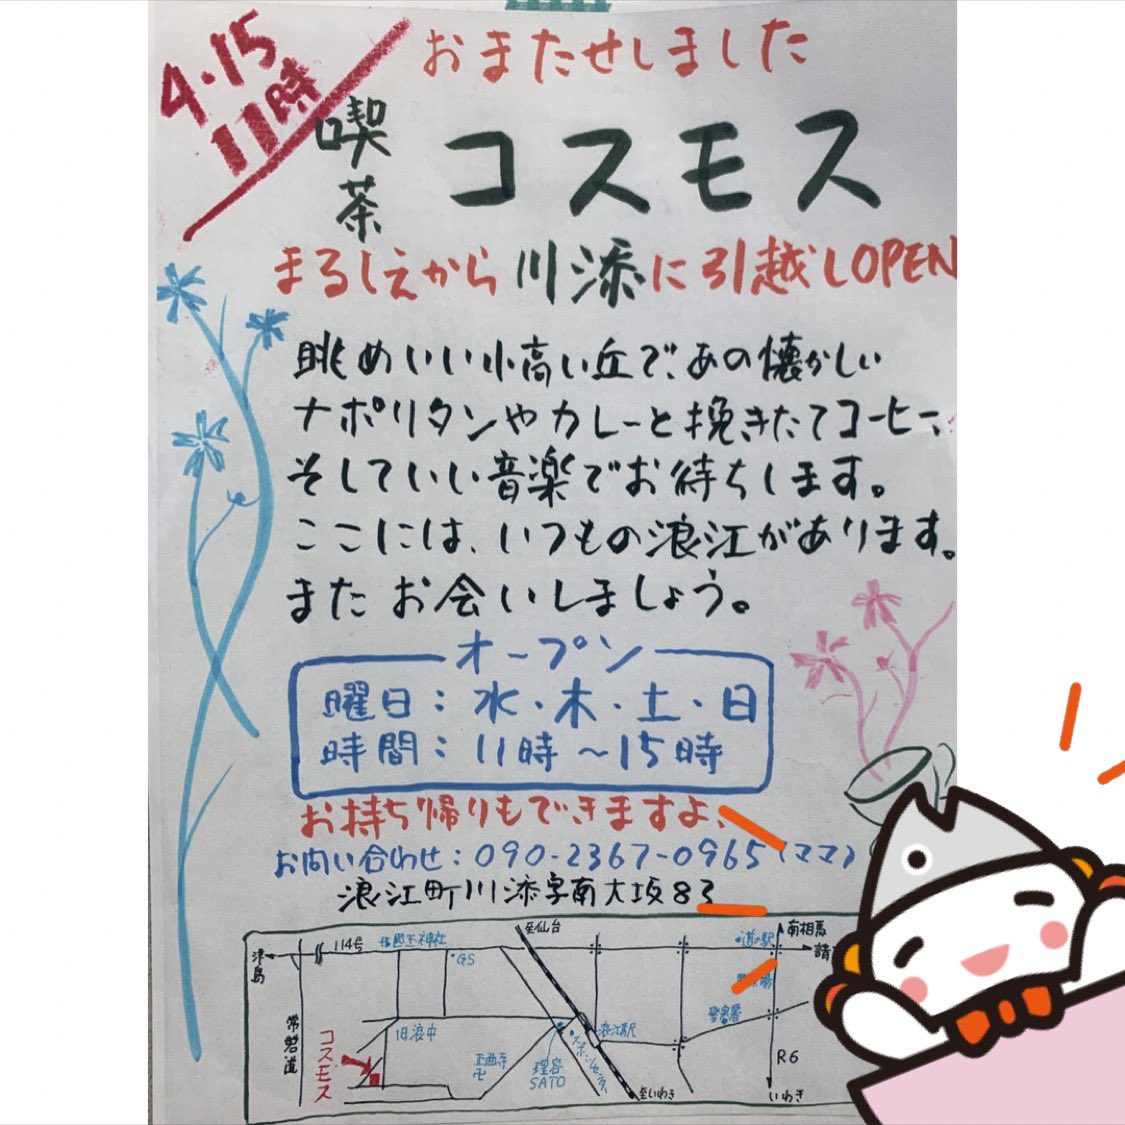 4・15
11時
おまたせしました
喫茶
コスモス
まるしぇから川添に引越しOPEN
眺めいい小高い丘で、あの懐かしい
ナポリタンやカレーと挽きたてコーヒー、
そしていい音楽でお待ちします。
ここには、いつもの浪江があります。
またお会いしましょう。
オープン
曜日：水・木・土・日
時間：11時〜15時
お持ち帰りもできますよ、
お問い合わせ：090-2367-0965（ママ）
浪江町川添字南大坂83
至仙台
南相馬
114号
国玉神社
・道の駅
津島
・GS
警察署
常磐道
旧浪中
浪江駅
コスモス
正西寺
卍
理容
SATO
R6
至いわき
いわき